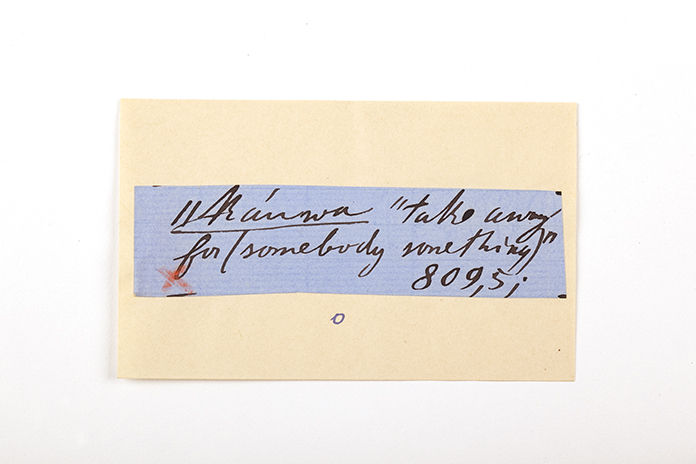 "take away
for (somebody something)"
809,5;
o